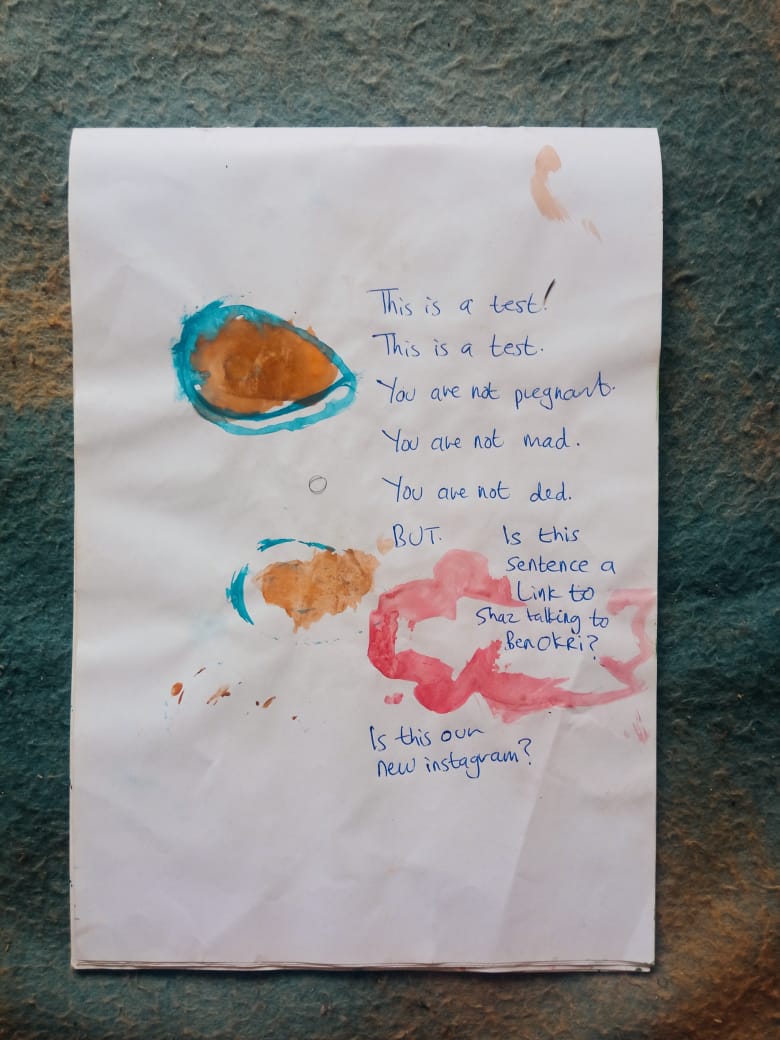 This is a test!
This is a test.
You are not pregnant.
You are not mad.
You are not ded.
BUT.
Is this
sentence a
Link to
Shaz talking to
Ben OKRi?
Is this our
new instagram?